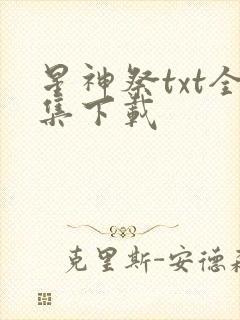 星神祭txt全
集下载
克里斯-安德森